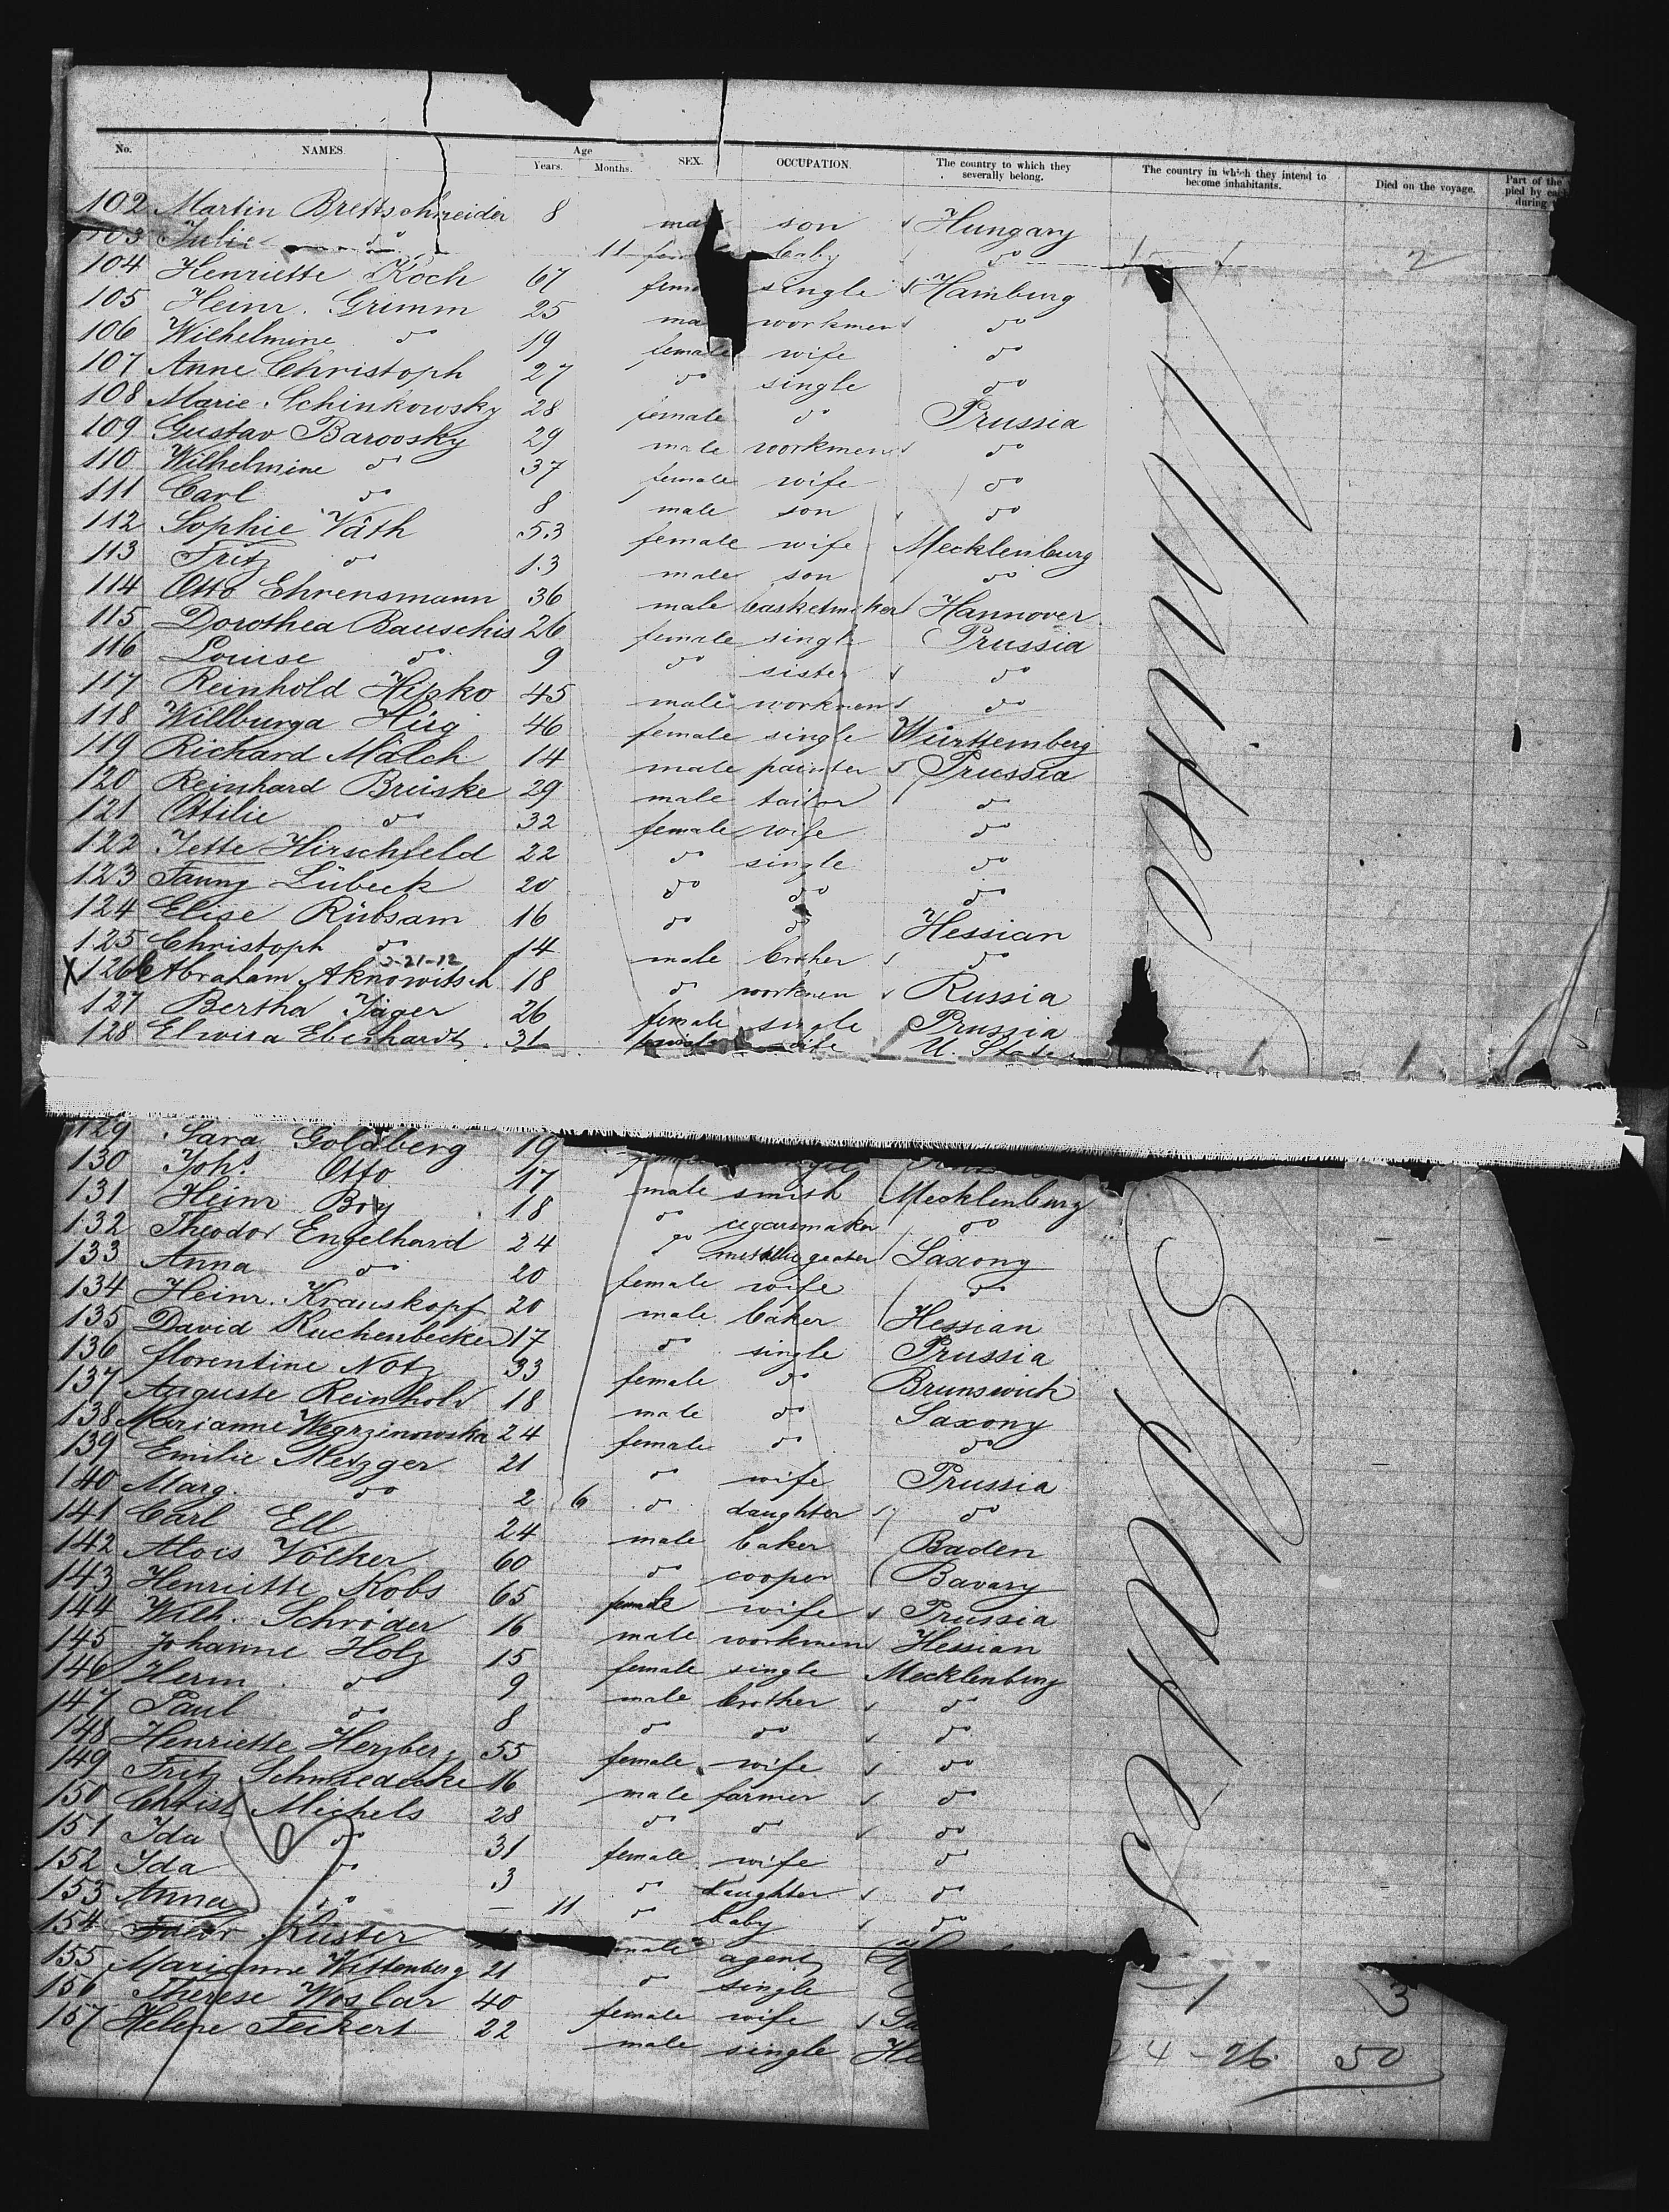 No. NAMES. Age Years. Months. SEX. OCCUPATION. The country to which they severally belong. The country in which they intend to become inhabitants. Died on the voyage. Part of the
102 Martin Brettschneider 8 male son Hungary
103 Julie do 11 baby do
104 Henriette Koch 67 single Hamburg
105 Heinr. Grimm 25 workmen do
106 Wilhelmine do 19 female wife do
107 Anne Christoph 27 do single do
108 Marie Schinkowsky 28 female do Prussia
109 Gustav Baroosky 29 male workmen do
110 Wilhelmine do 37 female wife do
111 Carl do 8 male son do
112 Sophie Väth 53 female wife Mecklenburg
113 Fritz do 13 male son do
114 Otto Ehrensmann 36 male basketmaker Hannover
115 Dorothea Bauschis 26 female single Prussia
116 Louise do 9 do sister do
117 Reinhold Hipko 45 male workmen do
118 Willburga Hüg 46 female single Württemberg
119 Richard Mälch 14 male painter Prussia
120 Reinhard Brüske 29 male tailor do
121 Ottilie do 32 female wife do
122 Jette Hirschfeld 22 do single do
123 Fanny Lübeck 20 do do do
124 Elise Rübsam 16 do do Hessian
125 Christoph do 14 male brother do
X 126 Abraham Aknowitsch 18 do workmen Russia
127 Bertha Jäger 26 female single Prussia
128 Elwira Eberhardt 31 female wife U. States
129 Sara Goldberg 19
130 Johs. Otto 17 male smith Mecklenburg
131 Heinr. Boy 18 do cigarsmaker do
132 Theodor Engelhard 24 do Saxony
133 Anna do 20 female wife do
134 Heinr. Krauskopf 20 male baker Hessian
135 David Kuchenbecker 17 do single Prussia
136 florentine Notz 33 female do Brunswick
137 Auguste Reinhold 18 male do Saxony
138 Marianne Wegrzinowska 24 female do do
139 Emilie Metzger 21 do wife Prussia
140 Marg. do 2 6 do daughter do
141 Carl Ell 24 male baker Baden
142 Alois Völker 60 do cooper Bavary
143 Henriette Kobs 65 female wife Prussia
144 Wilh. Schröder 16 male workmen Hessian
145 Johanne Holz 15 female single Mecklenburg
146 Herm. do 9 male brother do
147 Paul do 8 do do do
148 Henriette Herzberg 55 female wife do
149 Fritz Schmiedecke 16 male farmer do
150 Christ. Michels 28 do do do
151 Ida do 31 female wife do
152 Ida do 3 do daughter do
153 Anna do — 11 do baby do
154 Küster male agent
155 Marianne Wittenberg 21 do single
156 Therese Woslar 40 female wife
157 Helene Teckert 22 male single
24-26 50